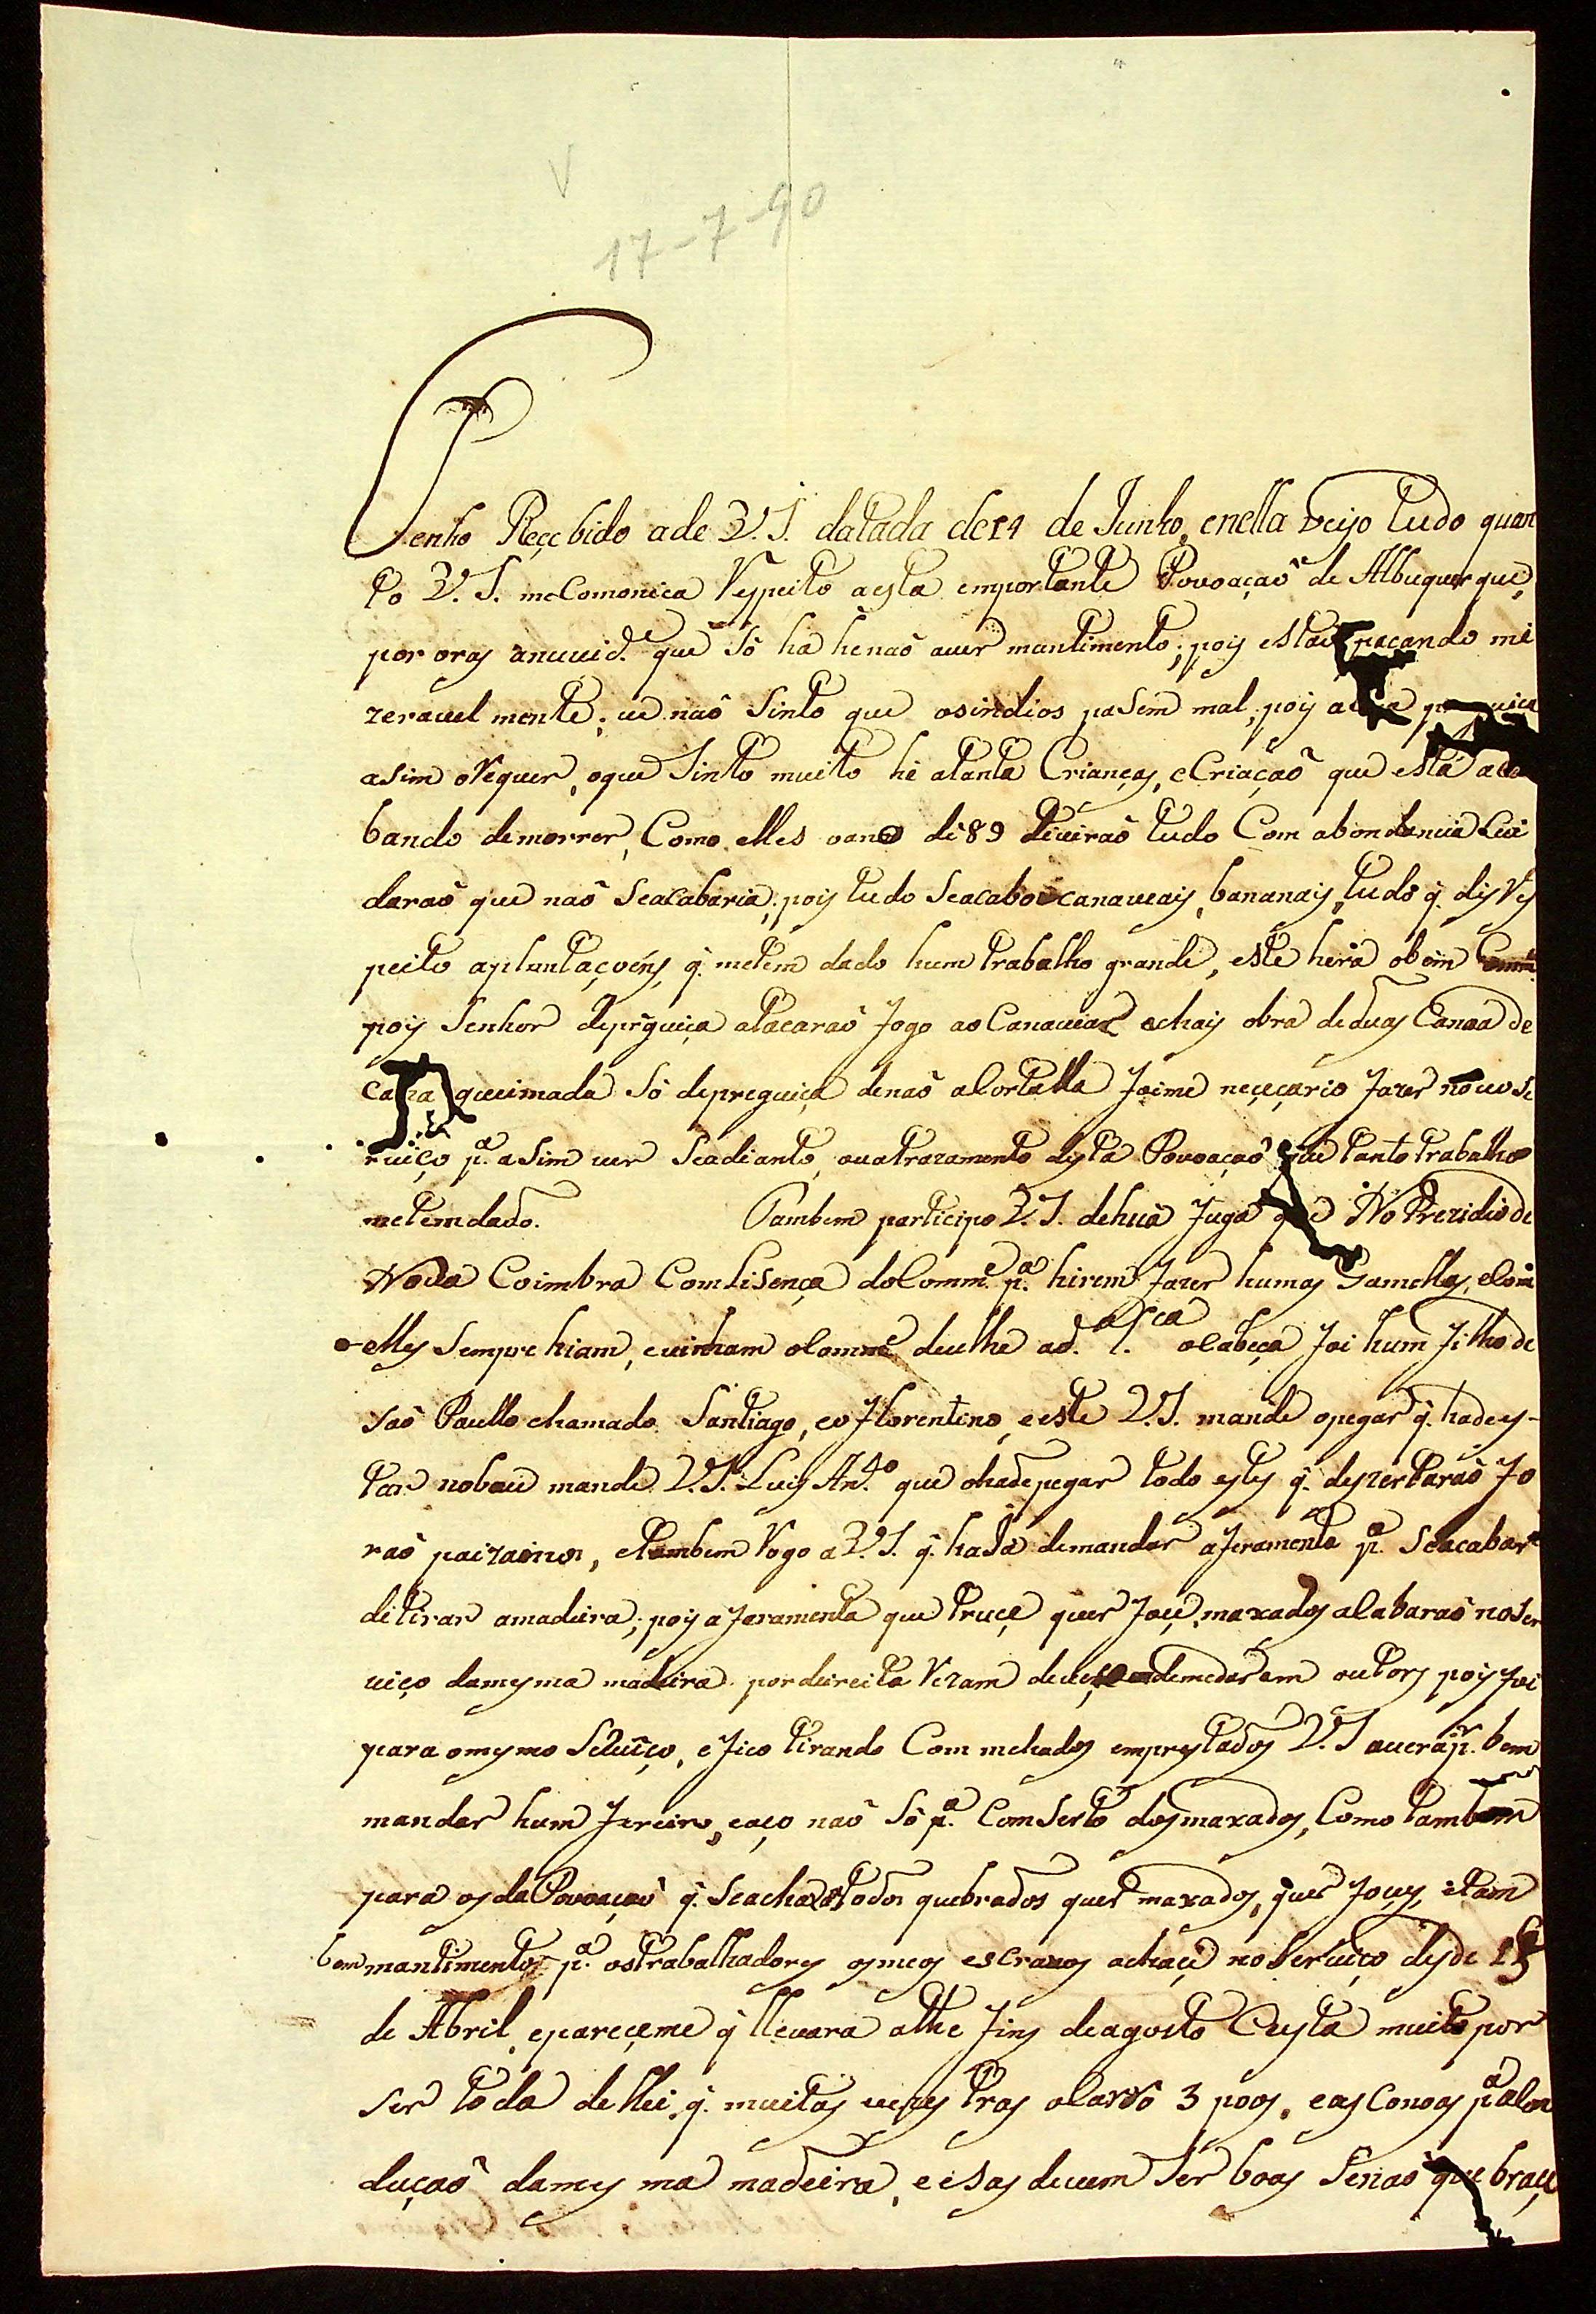 V
17-7-90
Tenho Reçebido a de V. S. datada de 14 de Junho, e nella veijo tudo quan
to V. S. me Comonica Respeito a esta emportante Povoaçaõ de Albuquerque,
por oras a nuuid.e que só ha hé naõ aver mantimento; pois estaõ paçando mi
zeravel mente; eu naõ sinto que os indios pasem mal, pois a
asim o Requer, o que sinto muito hé a tanta Crianças, e Criaçaõ que está aca
bando de morrer, Como elles o ano de 89 tiveraõ tudo Com abondancia Cui
daraõ que naõ se acabaria; pois tudo se acabou canaveais, bananais, tudo q. dis Res
peito a plantaçoéns, q. me tem dado hum trabalho grande, este hera o bom Comm.e
pois Senhor de prguiça atacaraõ fogo ao Canaveal achais obra de duas Canoa de
cana queimada só de preguiça de naõ a Cortalla foi me neçeçario fazer novo se
rviço p.a asim ver se adianto, ou atrazamento desta Povoaçaõ que tanto trabalho
me tem dado. Tambem participo V. S. de huã fuga que No Prezidio de
Nova Coimbra Com lisença do Comm.e p.a hirem fazer humas Gamellas, e Com
elles sempre hiam, e vinham o Comm.e deu lhe a d.a l.ca o Cabeça foi hum filho de
saõ Paullo chamado Santiago, e o Florentino, e este V. S. mande o pegar q. hade es-
tar no bau mande V. S. Luis An.to que o hade pegar todo estes q. dezertaraõ fo
raõ paizanos, e tambem Rogo a V. S. q. haja de mandar a feramenta p.a se acabar
de tirar a madeira; pois a feramenta que truçe quer foiçe, maxados acabaraõ no ser
viço da mesma madeira por direita Rezam de me darem outors pois foi
para o mesmo Serviço, e fico tirando Com mchados emprestados V. S averá p.r bem
mandar hum fereiro, e aço naõ só p.a Com serto dos maxados, Como tambem
para os da Povoaçaõ q. se acha todos quebrados quer maxados, quer foiçes, e tam
bem mantimentos p.a os trabalhadores os meos escravos achaçe no serviço desde 15
de Abril, e pareçeme q llevara athe fins de agosto Custa muito por
ser toda de llei, q. muitas vezes tras o Carro só 3 paos, e as Canoas p.a a Con
duçaõ da mes ma madeira, e esas devem ser boas senaõ que braçe